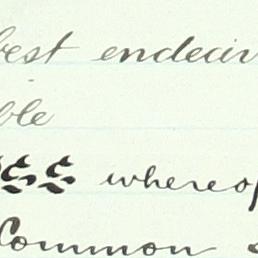 best endeav
ble
ss whereof
Common